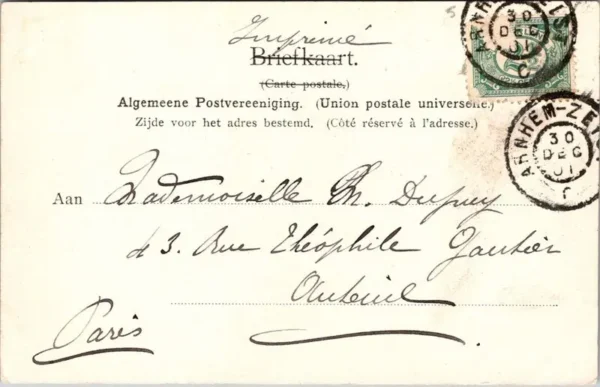 Imprimé
Briefkaart.
(Carte postale.)
Algemeene Postvereeniging. (Union postale universelle.)
Zijde voor het adres bestemd. (Côté réservé à l'adresse.)
Aan Mademoiselle Ch. Dupuy
43. Rue Théophile Gautier
Auteuil
Paris
ARNHEM-ZEIST
30
DEC
01
C
ARNHEM-ZEIST
30
DEC
01